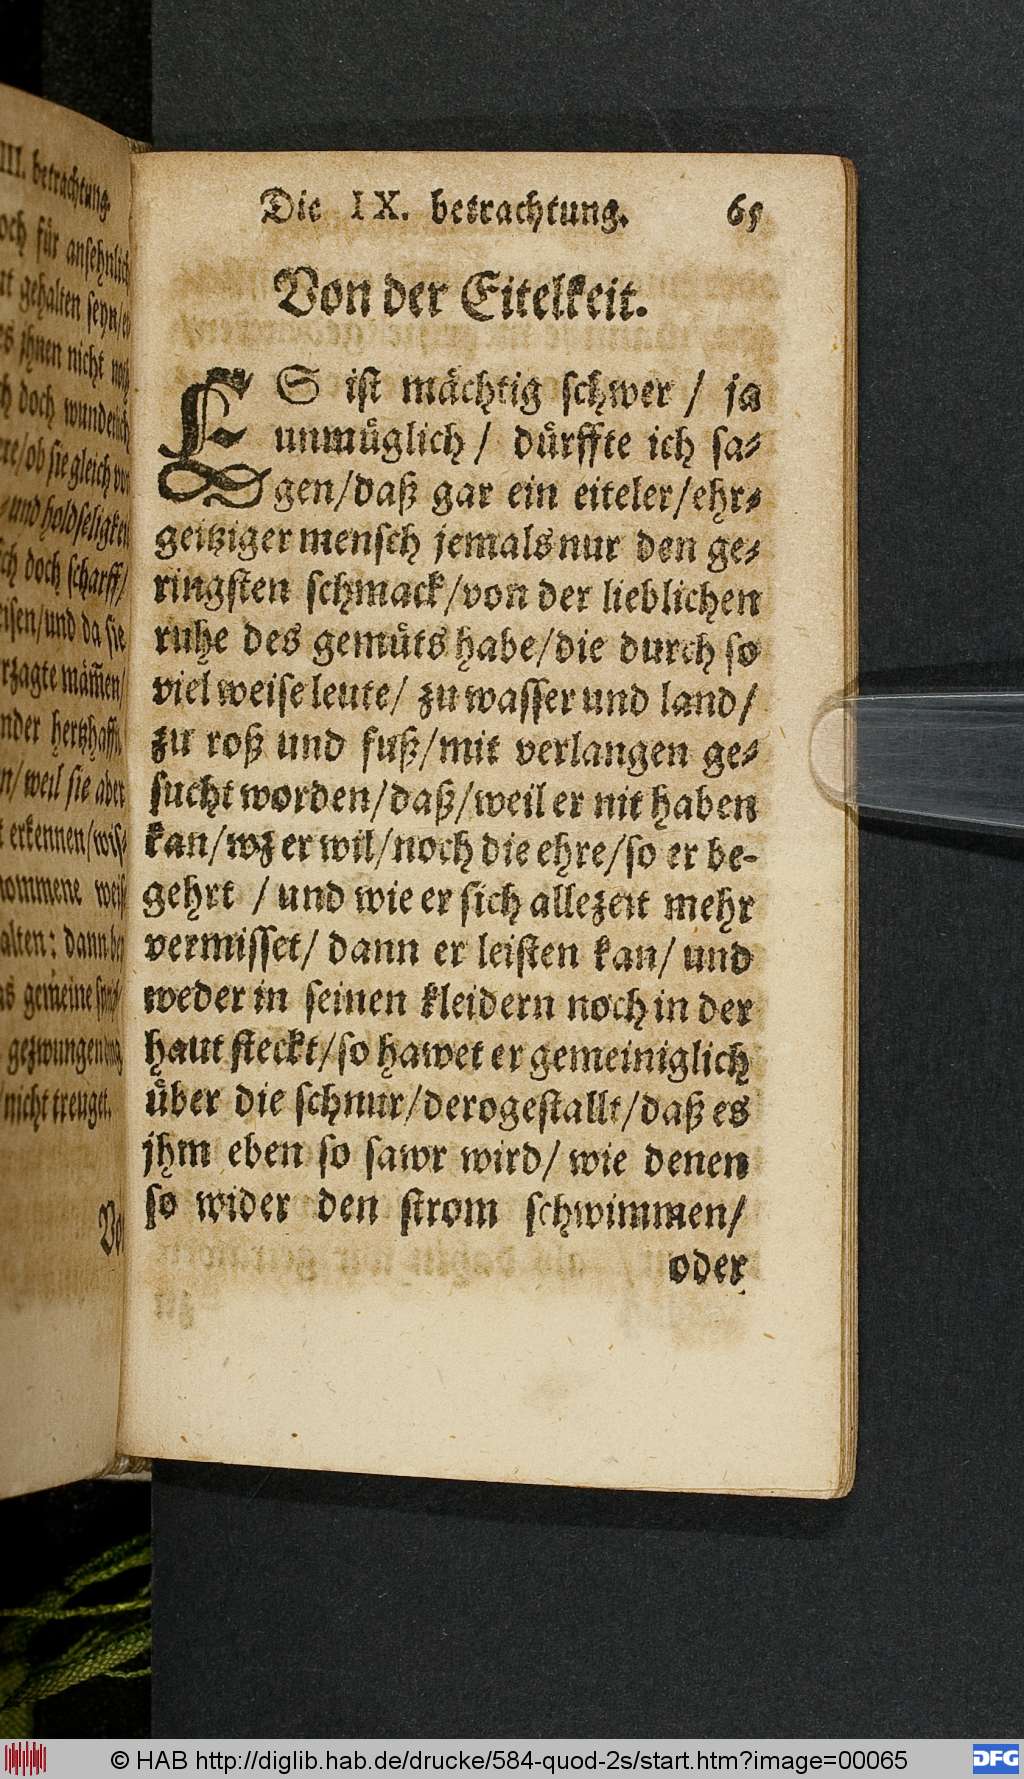 III. betrachtung.
och für ansehnlich
gehalten seyn/
ihnen nicht
doch wunderlich
/ob sie gleich von
und holdseligkeit
doch scharff/
/und da sie
mäm̃en/
hertzhafft
/weil sie aber
erkennen/
weise
: dann
gemeine
gezwungen
nicht treuget.
Die IX. betrachtung. 65
Von der Eitelkeit.
ES ist mächtig schwer / ja
unmüglich / dürffte ich sa-
gen/daß gar ein eiteler/ehr-
geitziger mensch jemals nur den ge-
ringsten schmack/von der lieblichen
ruhe des gemüts habe/die durch so
viel weise leute/ zu wasser und land/
zu roß und fuß/mit verlangen ge-
sucht worden/daß/weil er nit haben
kan/wz er wil/noch die ehre/so er be-
gehrt / und wie er sich allezeit mehr
vermisset/ dann er leisten kan/ und
weder in seinen kleidern noch in der
haut steckt/so hawet er gemeiniglich
über die schnur/derogestallt/daß es
jhm eben so sawr wird/ wie denen
so wider den strom schwimmen/
oder
© HAB http://diglib.hab.de/drucke/584-quod-2s/start.htm?image=00065
DFG